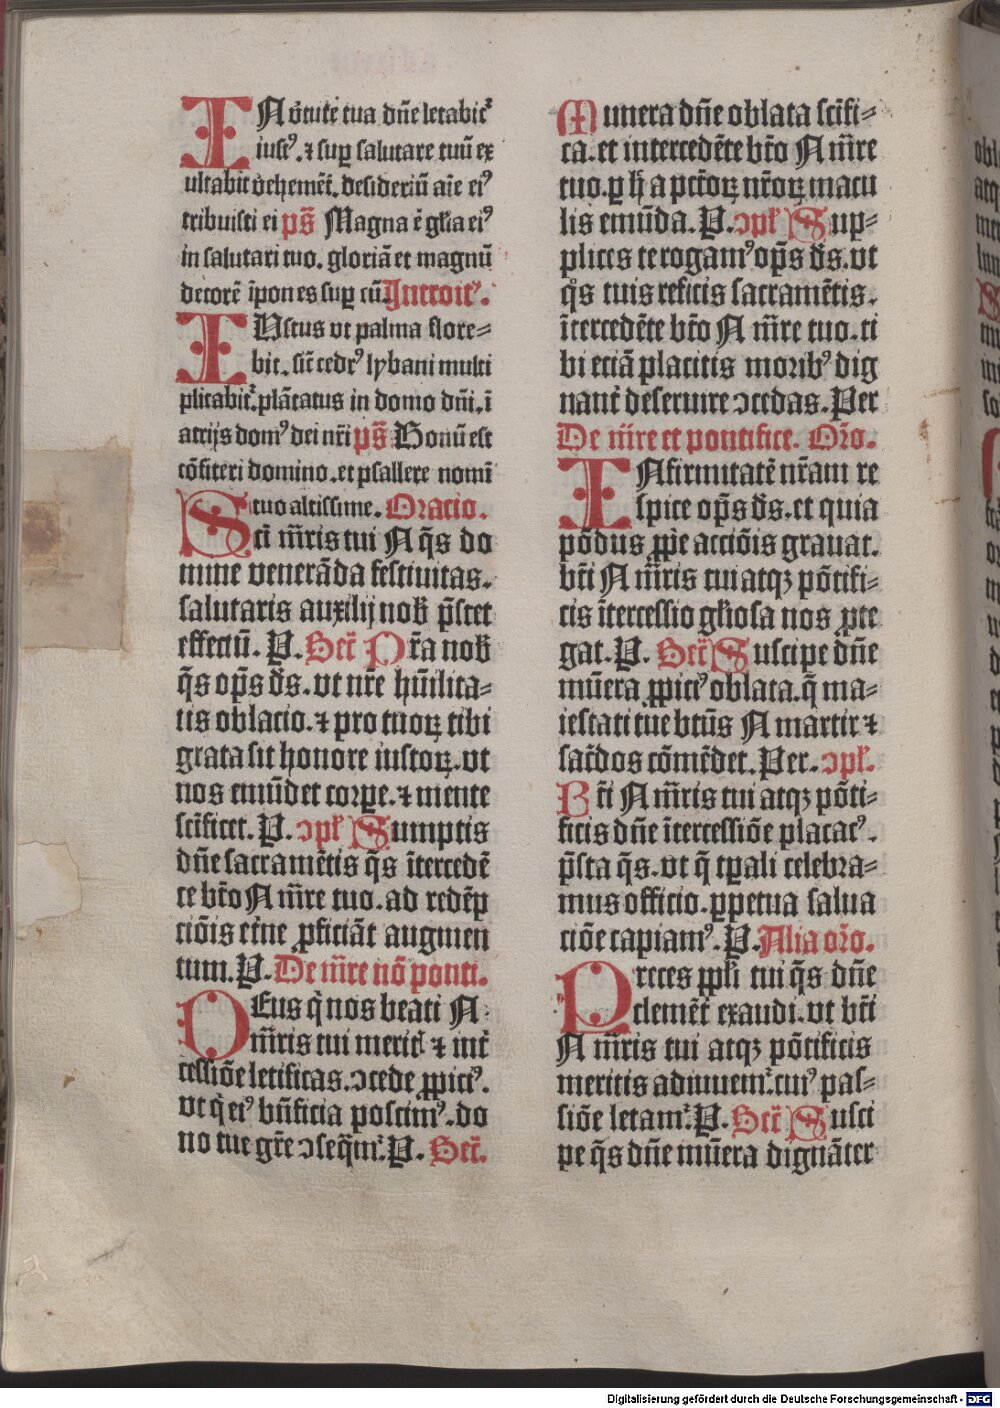 IN v̄tute tua dn̄e letabit᷑
iust⁹. ⁊ sup̱ salutare tuū ex
ultabit vehemēt᷑. desideriū aīe ei⁹
tribuisti ei ps̄ Magna ē gl̄ia ei⁹
in salutari tuo. gloriā et magnū
decorē īpones sup̱ eū. Introit⁹.
IUstus vt palma flore⸗
bit. sic̄ cedr⁹ lybani multi
plicabit᷑. plātatus in domo dn̄i. ī
atrijs dom⁹ dei nr̄i ps̄ Bonū est
cōfiteri domino. et psallere nomī
tuo altissime. Oratio.
Sc̄i m̄ris tui N q̄s do
mine venerāda festiuitas.
salutaris auxilij nob̄ p̄stet
effectū. P. Secr̄ Or̄a nob̄
q̄s op̄s ds̄. vt nr̄e hūilita⸗
tis oblacio. ⁊ pro tuoꝝ tibi
grata sit honore iustoꝝ. vt
nos emūdet corpe. ⁊ mente
sc̄ificet. P. ↄpl̄ Sumptis
dn̄e sacramētis q̄s ītercedē
te bt̄o N m̄re tuo. ad redēp
ciōis et̄ne ꝓficiāt augmen
tum. P. De m̄re nō ponti.
DEus q̇ nos beati N
m̄ris tui merit̄ ⁊ int̄
cessiōe letificas. ↄcede ꝓpici⁹.
vt q̇ ei⁹ bn̄ficia poscim⁹. do
no tue gr̄e ↄseq̄m᷑. P. Secr̄.
Munera dn̄e oblata sc̄ifi⸗
ca. et intercedēte bt̄o N m̄re
tuo. ꝑ h̄ a pctōꝝ nr̄oꝝ macu
lis emūda. P. ↄpl̄ Sup⸗
plices te rogam⁹ op̄s ds̄. vt
q̄s tuis reficis sacramētis.
ītercedēte bt̄o N m̄re tuo. ti
bi eciā placitis morib⁹ dig
nant̄ deseruire ↄcedas. Per
De m̄re et pontifice. Or̄o.
INfirmitatē nr̄am re
spice op̄s ds̄. et quia
pōdus ꝓpe acciōis grauat.
bt̄i N m̄ris tui atqꝫ pōtifi⸗
cis ītercessio gl̄iosa nos ꝓte
gat. P. Secr̄ Suscipe dn̄e
mūera ꝓpici⁹ oblata. q̄ ma⸗
iestati tue bt̄us N martir ⁊
sac̄dos cōmēdet. Per. ↄpl̄.
Bt̄i N m̄ris tui atqꝫ pōti⸗
ficis dn̄e ītercessiōe placat⁹.
p̄sta q̄s. vt q̄ tꝑali celebra⸗
mus officio. ꝑpetua salua
ciōe capiam⁹. P. Alia or̄o.
Preces ppl̄i tui q̄s dn̄e
clemēt̄ exaudi. vt bt̄i
N m̄ris tui atqꝫ pōtificis
meritis adiuuem᷑. cui⁹ pas⸗
siōe letam᷑. P. Secr̄ Susci
pe q̄s dn̄e mūera dignāter
Digitalisierung gefördert durch die Deutsche Forschungsgemeinschaft - DFG